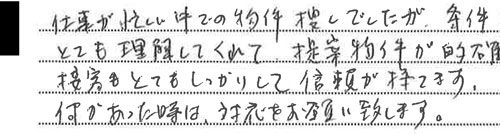 仕事が忙しい中での物件捜しでしたが、条件
とても理解してくれて、提案物件が的確
接客もとてもしっかりして信頼が持てます。
何かあった時は、対応をお願い致します。